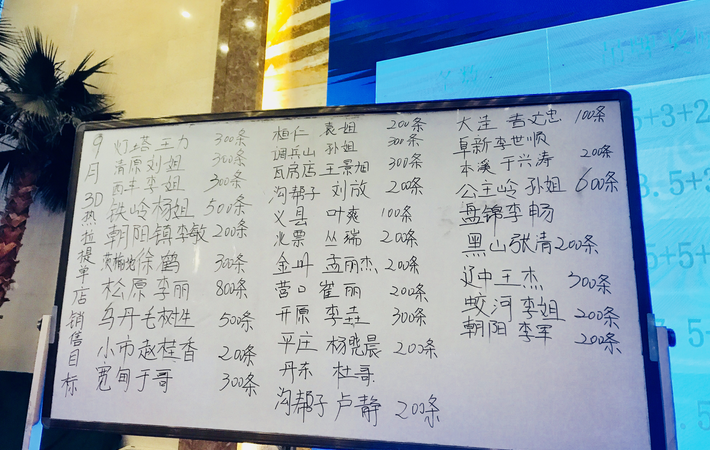 9月3D热拉提单店销售目标
灯塔 王力 300条
清原 刘姐 300条
西丰 李姐 300条
铁岭 杨姐 500条
朝阳镇 李敏 200条
徐鹤 300条
松原 李丽 800条
乌丹 毛树生 500条
小市 赵桂香 20条
宽甸 于哥 300条
桓仁 袁姐 200条
调兵山 孙姐 300条
瓦房店 王景旭 300条
沟帮子 刘放 200条
义县 叶爽 100条
北票 丛瑞 200条
金州 孟丽杰 200条
营口 崔丽 200条
开原 李垚 300条
平庄 杨晓晨 200条
丹东 杜哥
沟帮子 卢静 200条
大洼 文忠 100条
阜新 李世顺
本溪 于兴涛 200条
公主岭 孙姐 600条
盘锦 李畅
黑山 张清 200条
辽中 王杰 300条
蛟河 李姐 200条
朝阳 李军 200条
5+3+2
3.5+3
5+5+
5+
5+